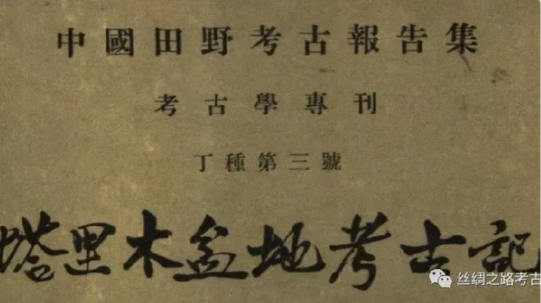 中國田野考古報告集
考古學專刊
丁種第三號
塔里木盆地考古記
丝绸之路考古